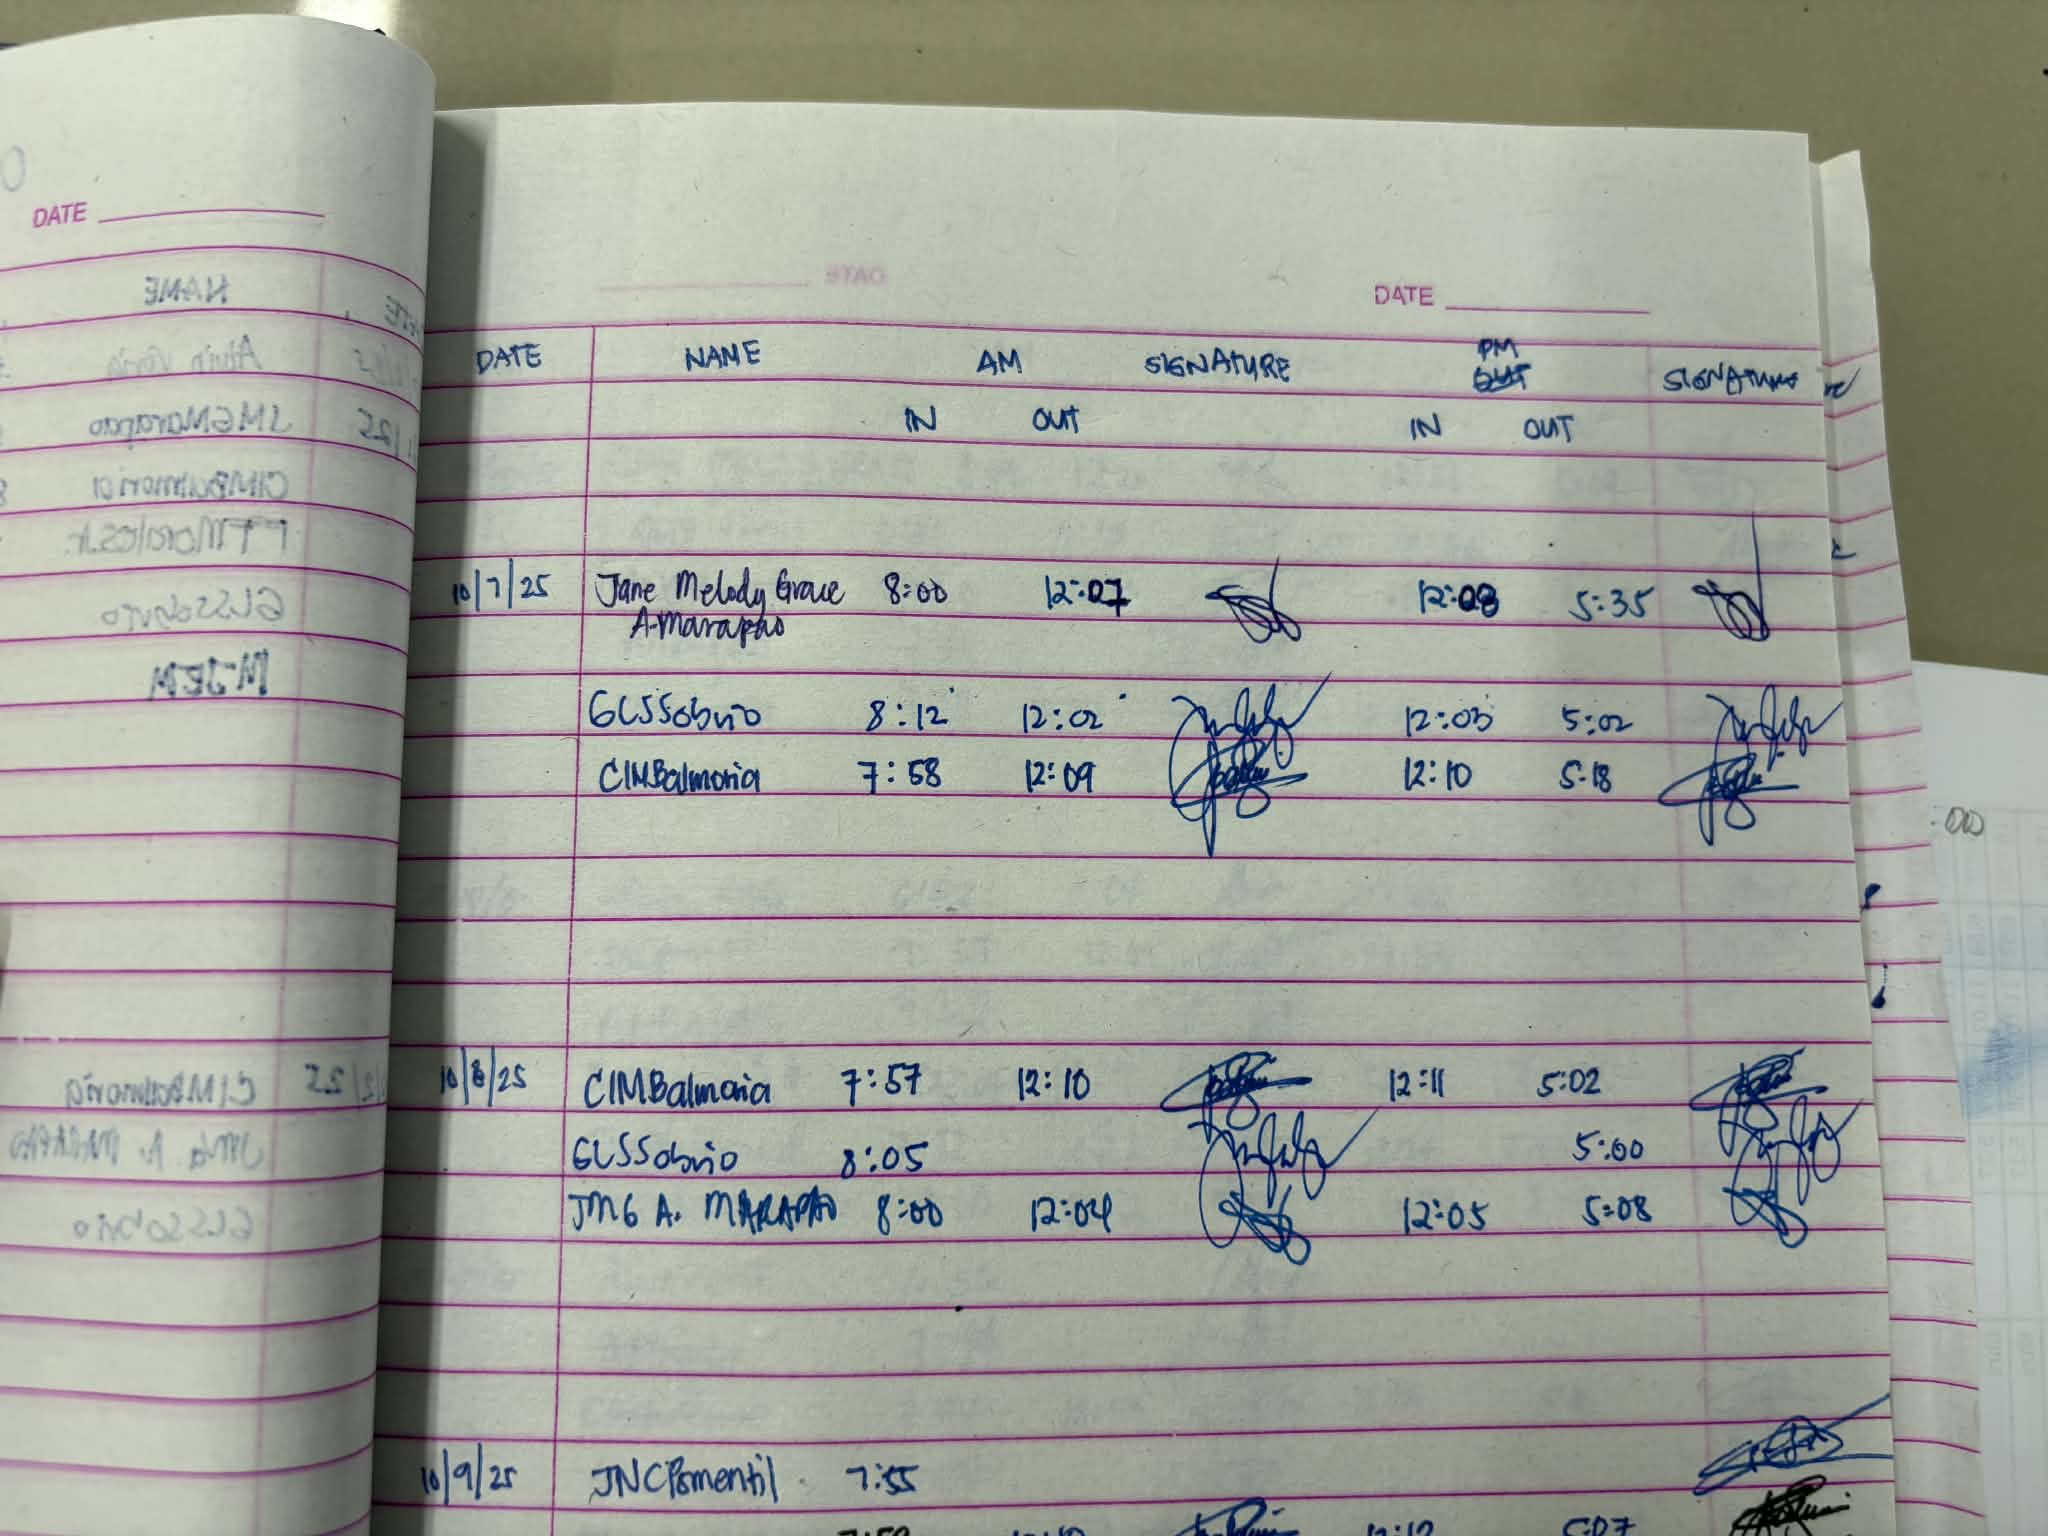 DATE
DATE
DATE NAME AM SIGNATURE PM SIGNATURE
IN OUT IN OUT
10/7/25 Jane Melody Grace 8:00 12:07 12:08 5:35
A. Marapao
GLSSobrio 8:12 12:02 12:03 5:02
CIMBalmoria 7:58 12:09 12:10 5:18
10/8/25 CIMBalmoria 7:57 12:10 12:11 5:02
GLSSobrio 8:05 5:00
JMG A. MARAPAO 8:00 12:04 12:05 5:08
10/9/25 7:55